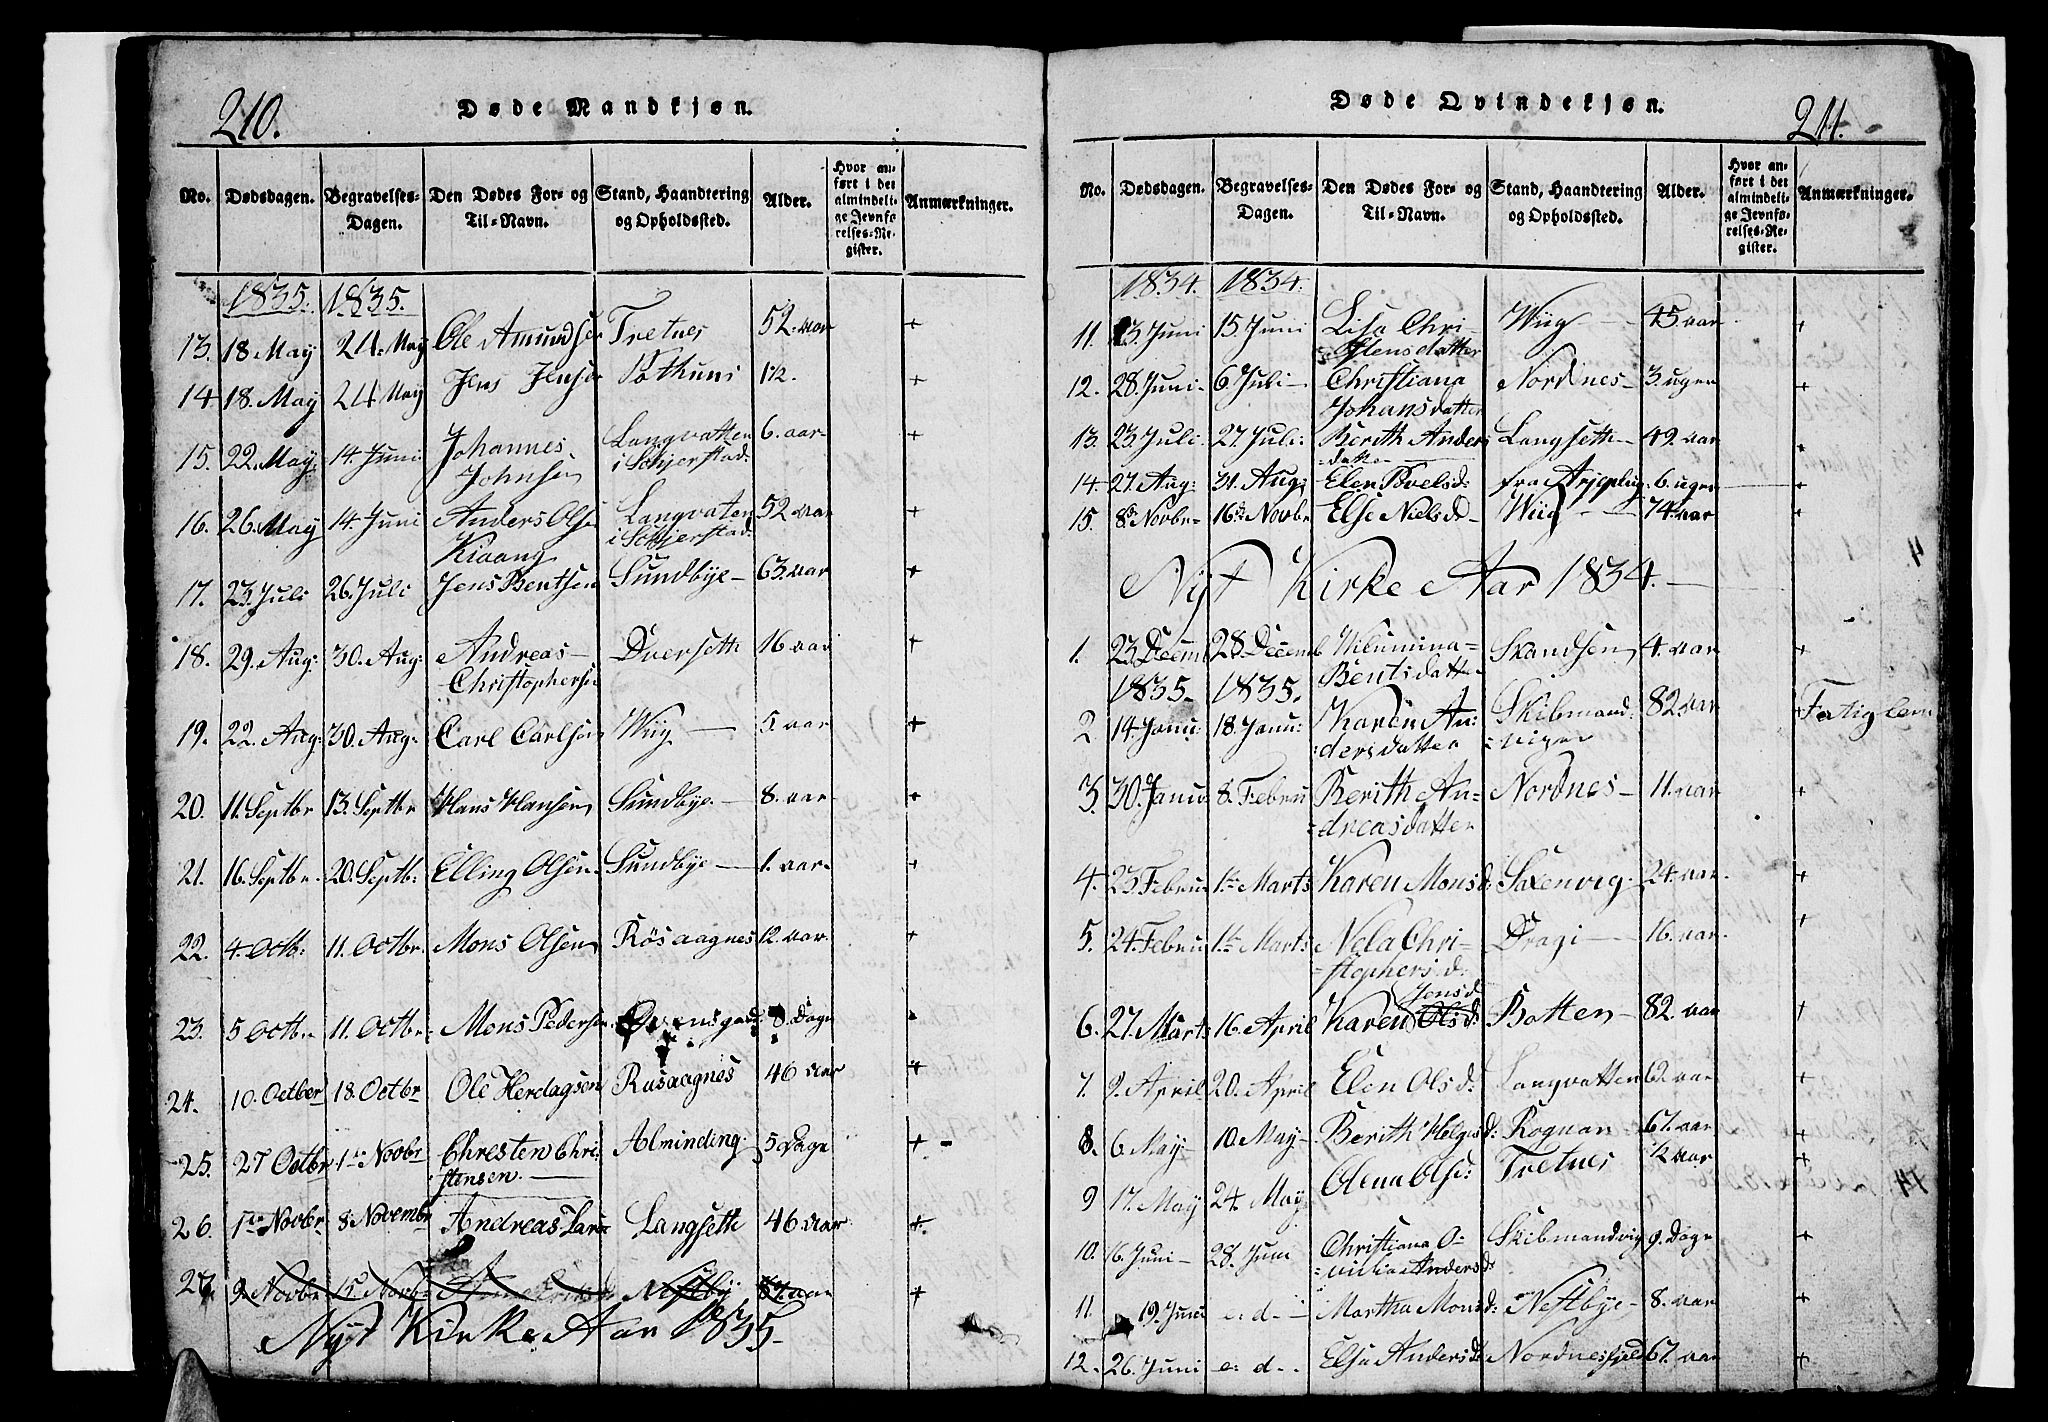 210.
Døde Mandkjøn.
No. Dødsdagen. Begravelses-Dagen. Den Dødes For- og Til-Navn. Stand, Haandtering og Opholdssted. Alder. Hvor anført i det almindelige Jevnførelses-Register. Anmærkninger.
1835. 1835.
13. 18 May 24. May Ole Amundsen Tretnes 52. aar +
14 18. May 24 May Jens Jensen Pothuus 1/2. +
15. 22. May: 14. Juni Johannes Johnsen Langvatten i Schjerstad: 6. aar- +
16. 26. May 14. Juni Anders Olsen Kiaang Langvaten i Schjerstad: 52 aar +
17. 23. Juli 26. Juli Jens Bentsen Sundbye- 63. aar +
18. 29. Aug: 30. Aug: Andreas Christophersen Dverseth 16 aar +
19. 22. Aug: 30. Aug: Carl Carlsen Wiig 5. aar +
20. 11. Septbr 13. Septbr Hans Hansen Sundbye. 8. aar +
21. 16. Septbr. 20. Septb: Elling Olsen Sundbye 1. aar +
22. 4. Octb: 11. Octbr. Mons Olsen Rösaagnes 12. aar. +
23. 5 Octbr. 11. Octbr: Mons Pedersen 8. Dage
24. 10. Octber 18. Octbr Ole Herdagsen Rusaagnes 46 aar +
25. 27 Octbr 1ste Novbr Chresten Christensen. Alminding. 5 Dage +
26. 1ste Novbr 8 Novembr Andreas Langseth 46 aar +
27. 9. Novbr 15 Novbr Nestby aar +
Nyt Kirke Aar 1835
211.
Døde Qvindekjøn.
No. Dødsdagen. Begravelses-Dagen. Den Dødes For- og Til-Navn. Stand, Haandtering og Opholdssted. Alder. Hvor anført i det almindelige Jevnførelses-Register. Anmærkninger.
1834. 1834.
11. 13 Juni 15. Juni Lisa Christensdatter Wiig 45 aar +
12. 28. Juni 6. Juli Christiana Johansdatter Nordnes 3. uger +
13. 23 Juli 27. Juli: Berith Andersdatter Langseth 49. aar
14. 27. Aug: 31. Aug: Elen Povelsd: fra Arjeplug 6. uger +
15. 8de Novbr 16de Novbr Else Nielsd Wiig 74. aar +
Nyt Kirke Aar 1834.
1. 23 Decemb 28. Decemb Wilumina Bentsdatter Skandsen 4. aar +
1835. 1835.
2 14 Janu: 18. Janu: Karen Andersdatter Skibmandvigen 82 aar Fatiglem
3. 30. Janu 8. Febru Berith Andreasdatter Nordnes 11. aar +
4. 23 Febru 1te Marts Karen Monsd: Saxenvig. 24. aar. +
5. 24. Febru 1te Marts Nela Christophersd: Dragi 16. aar. +
6. 27. Marts 16 April Karen Olsd: Jonsd Botten 82. aar +
7. 9 April 20. April Elen Olsd: Langvatten 62. aar +
8. 6. May 10. May Berith Helgesd: Rognan 67. aar +
9 17. May 24. May Olena Olsd: Tretnes 1/2 aar +
10. 16. Juni 28. Juni Christiana Andersd: Skibmandvig 9. Dage +
11. 19. Juni e. d. Martha Monsd: Nestbye 8. aar +
12. 26. Juni e. d. Elsa Andersd: Nordnesfjeld 67. aar +